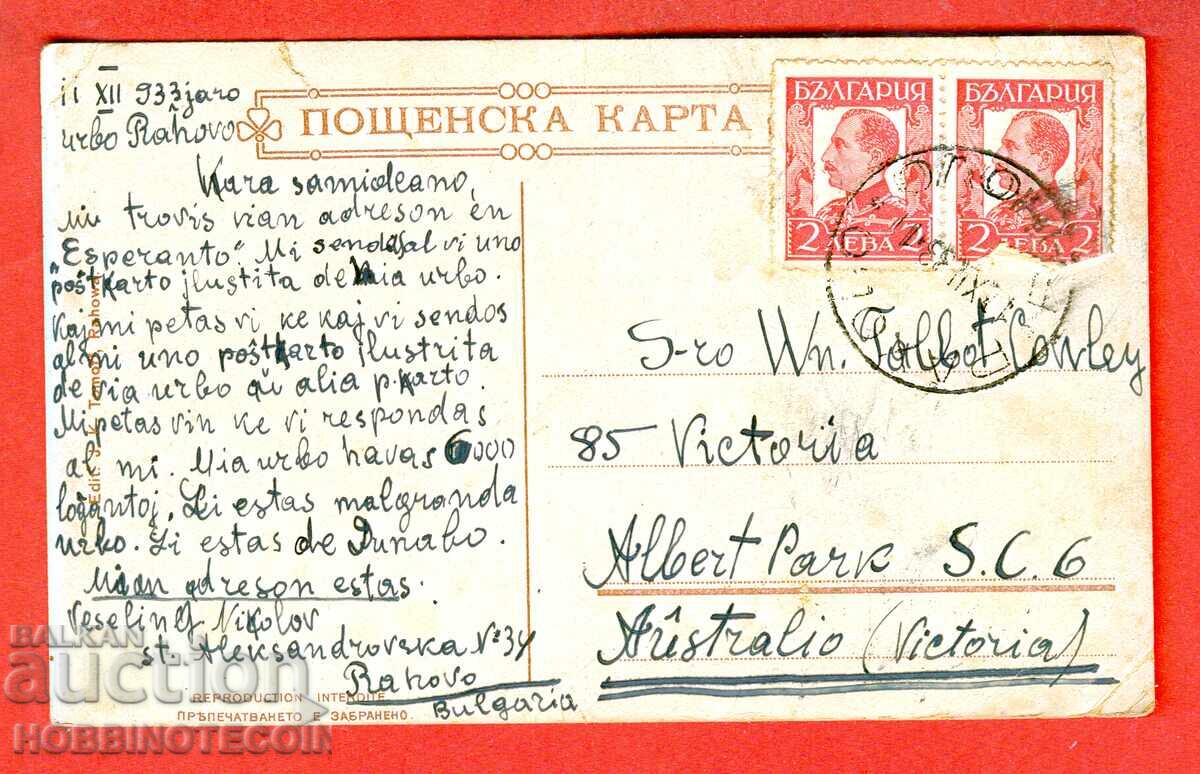 11 XII 933 jaro
urbo Rahovo
ПОЩЕНСКА КАРТА
БЪЛГАРИЯ
БЪЛГАРИЯ
2 ЛЕВА
2 ЛЕВА 2
Kara samideano,
Mi trovis vian adreson en
"Esperanto". Mi sendas al vi uno
"poŝtkarto ilustita de mia urbo.
Kaj mi petas vi ke kaj vi sendos
al mi uno poŝtkarto ilustrita
de via urbo aŭ alia p.karto.
Mi petas vin ke vi respondas
al mi. Mia urbo havas 6000
loĝantoj. Ĝi estas malgranda
urbo. Ĝi estas de Dunabo.
Mian adreson estas.
Veselin G Nikolov
st. Aleksandrovska № 34
Rahovo
Bulgaria
S-ro Wn. Talbot Cowley
85 Victoria
Albert Park S.C.6
Aŭstralio (Victoria)
Rahowa
REPRODUCTION INTERDITE
ПРЕПЕЧАТВАНЕТО Е ЗАБРАНЕНО.
BALKAN
auction
HOBBINOTECOIN